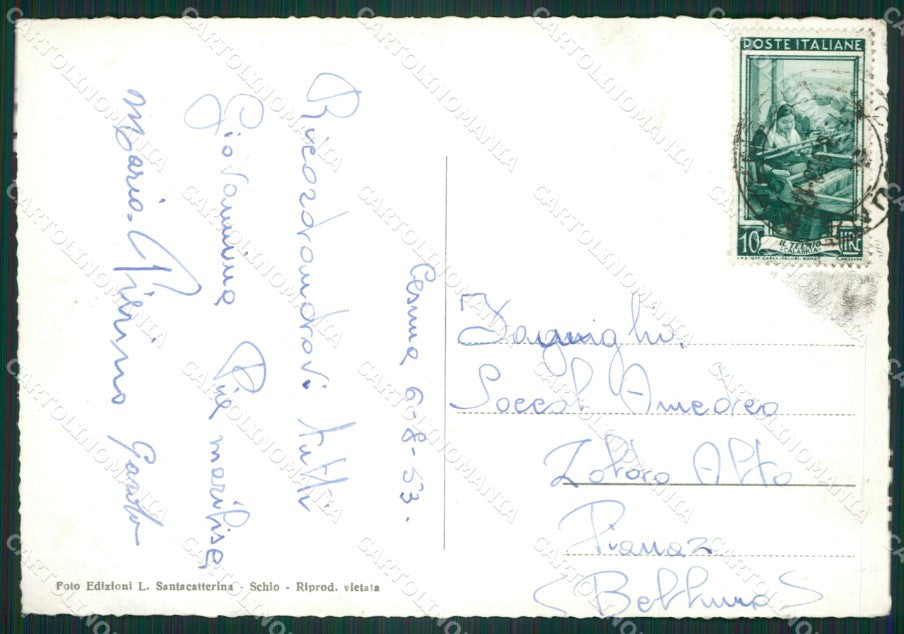 POSTE ITALIANE
10 LIRE
IL TELAIO
(CALABRIA)
Cesuna 6-8-53.
Ricordandovi tutti
Giovannina Pia
Maria-
Famiglia.
Soccol Amedeo
Zoldo Alto
Pianaz
(Belluno)
Foto Edizioni L. Santacatterina - Schio - Riprod. vietata
CARTOLINOMANIA